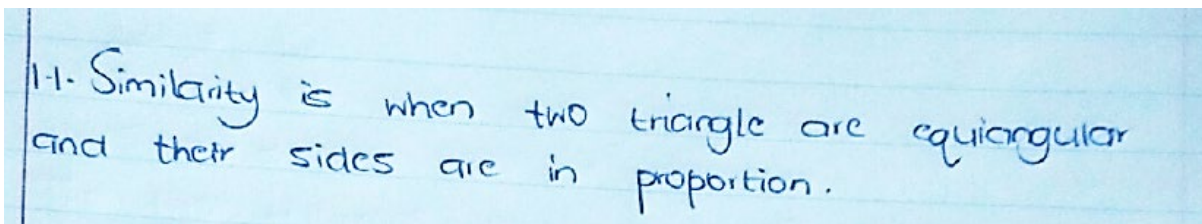 1.1. Similarity is when two triangle are equiangular
and their sides are in proportion.